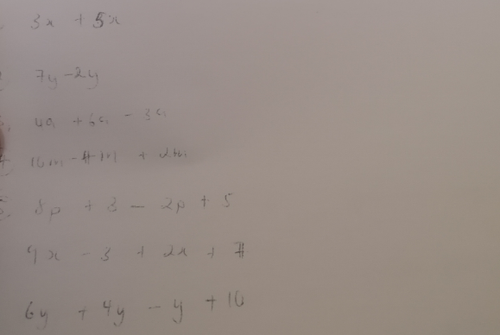 3x + 5x
7y - 2y
4a + 6a - 3a
10m - 4m + 2m
8p + 3 - 2p + 5
9x - 3 + 2x + 7
6y + 4y - y + 10